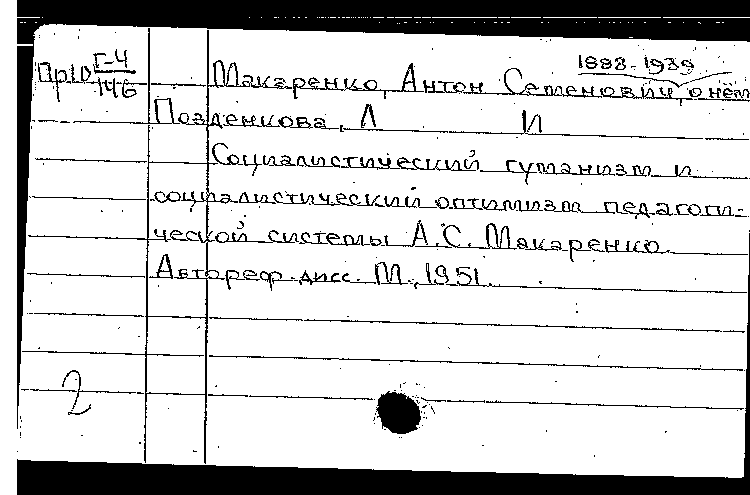 1888-1939
Пр10 Г-4/146 Макаренко, Антон Семенович, о нём
Позденкова, Л И
Социалистический гуманизм и
социалистический оптимизм педагоги-
ческой системы А.С. Макаренко.
Автореф. дисс. М., 1951.
2